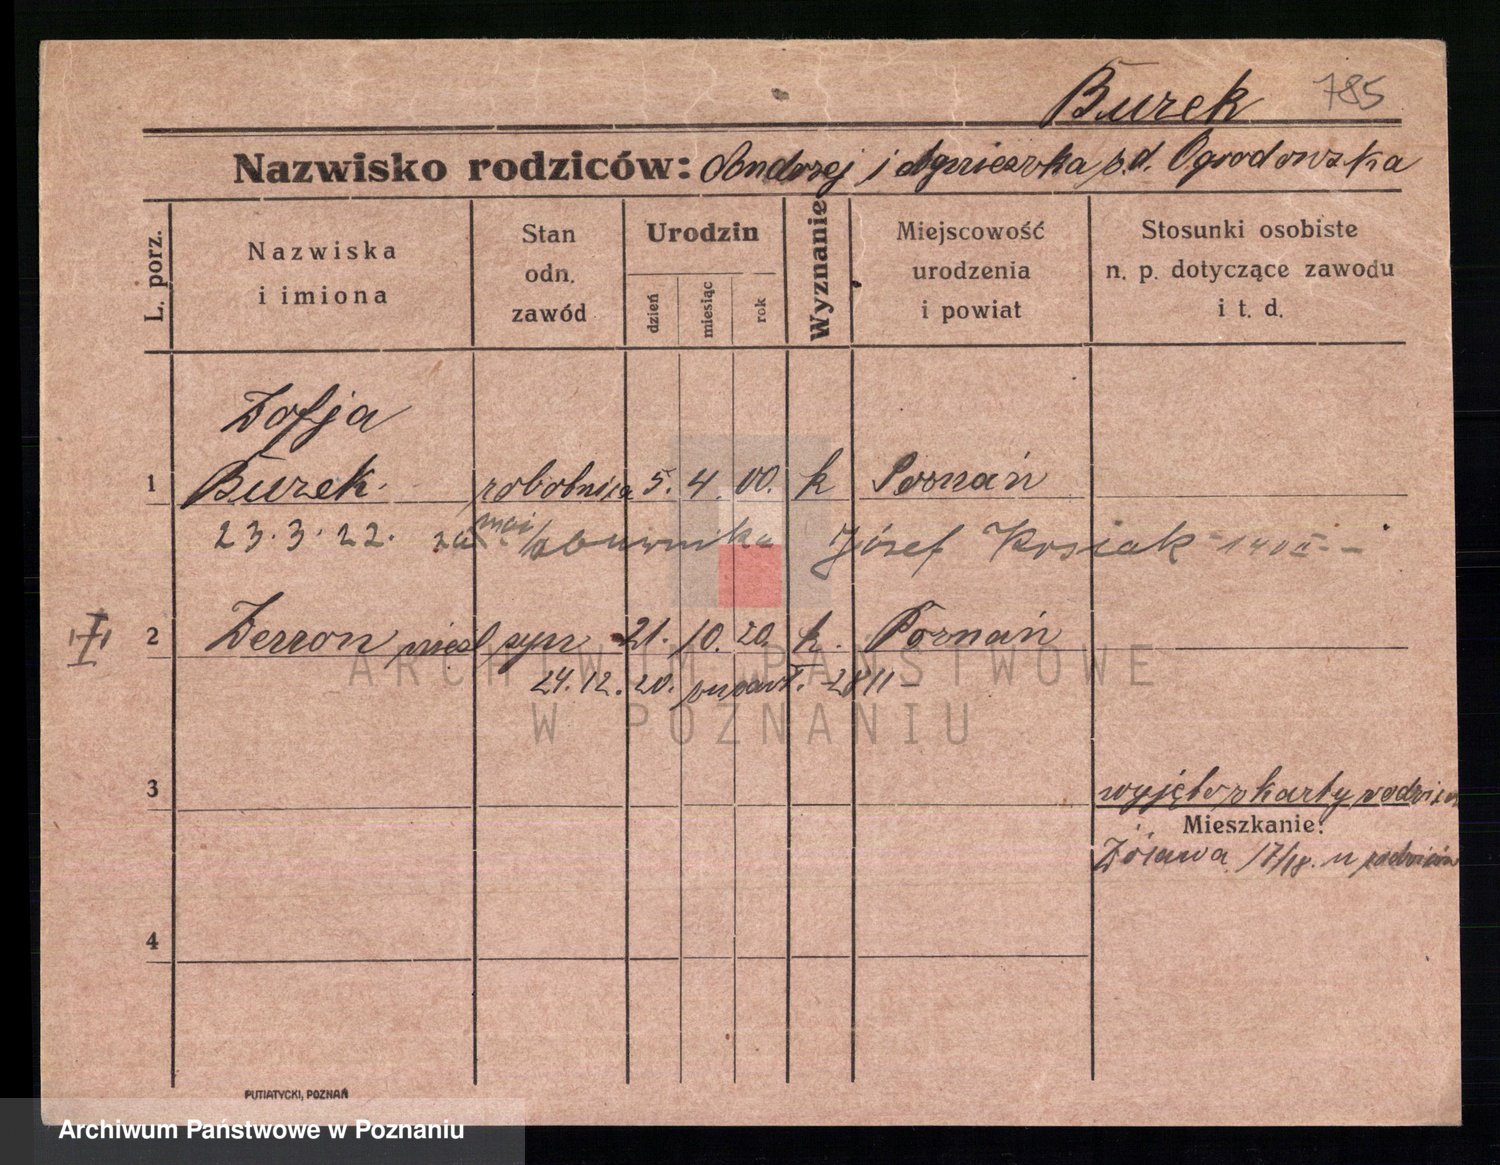 Burek 785
Nazwisko rodziców: Andrzej i Agnieszka z.d. Ogrodowska
L. porz.
Nazwiska
i imiona
Stan
odn.
zawód
Urodzin
dzień
miesiąc
rok
Wyznanie
Miejscowość
urodzenia
i powiat
Stosunki osobiste
n. p. dotyczące zawodu
i t. d.
Zofja
1 Burek. robotnica 5. 4. 00. k Poznań
23.3.22. za Józef
2 Zenon syn 21. 10. 20. k. Poznań
24.12.20. 2811
ARCHIWUM PAŃSTWOWE
W POZNANIU
3 wyjęto z karty
Mieszkanie:
17/18. u rodziców
4
PUTIATYCKI, POZNAŃ
Archiwum Państwowe w Poznaniu